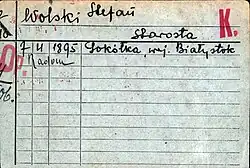 Wolski Stefan K.
Starosta
7 II 1895 Sokółka, woj. Białystok
Radom